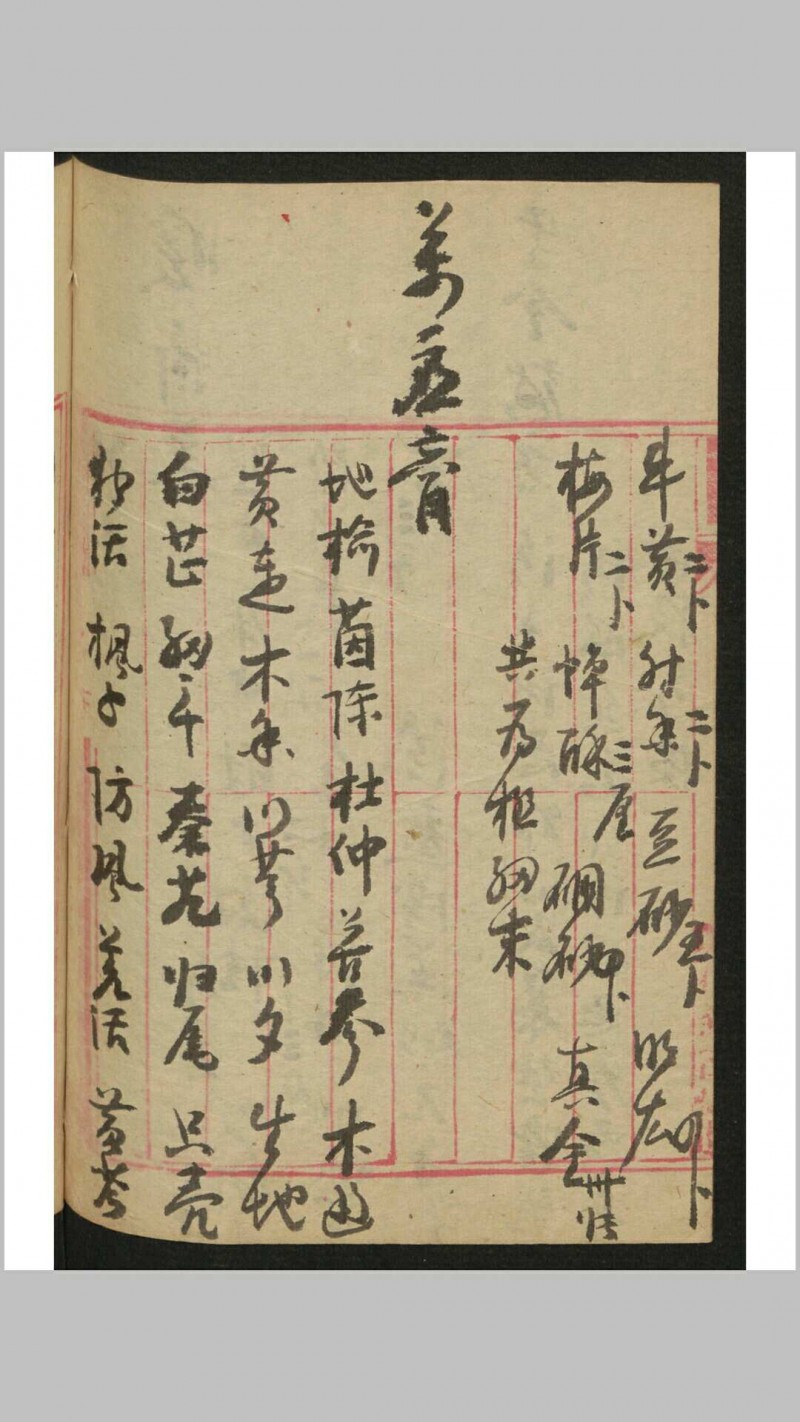 牛黄二卜 射香二卜 豆砂五卜 明
梅片二卜 酥三厘 硼砂卜 真金卅张
共为极细末
万应膏
地榆 茵陈 杜仲 苦参 木通
黄连 木香 川芎 川夕 生地
白芷 细辛 秦艽 归尾 只壳
独活 枫子 防风 羌活 黄芩